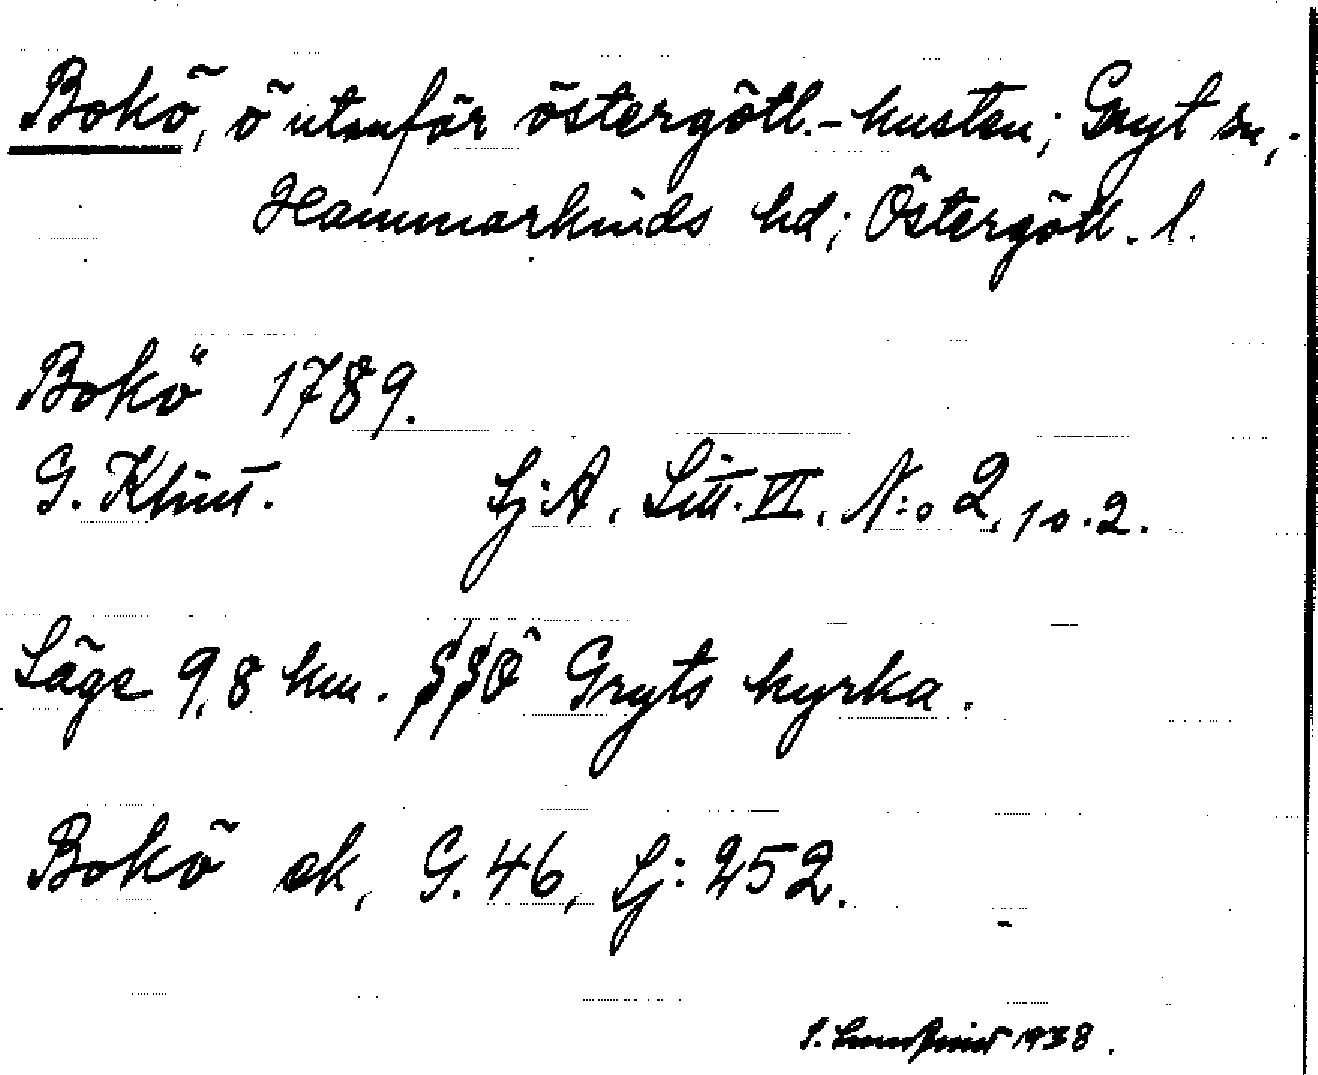 Bokö, ö utanför östergötl.-kusten; Gryt sn,.
Hammarkinds hd; Östergötl. l.
Bokö 1789.
G. Klint. Sj:A, Litt. VI, N:o 2, 10.2.
Läge 9,8 km. SSÖ Gryts kyrka.
Bokö ek, G. 46, Sj: 252.
1938.